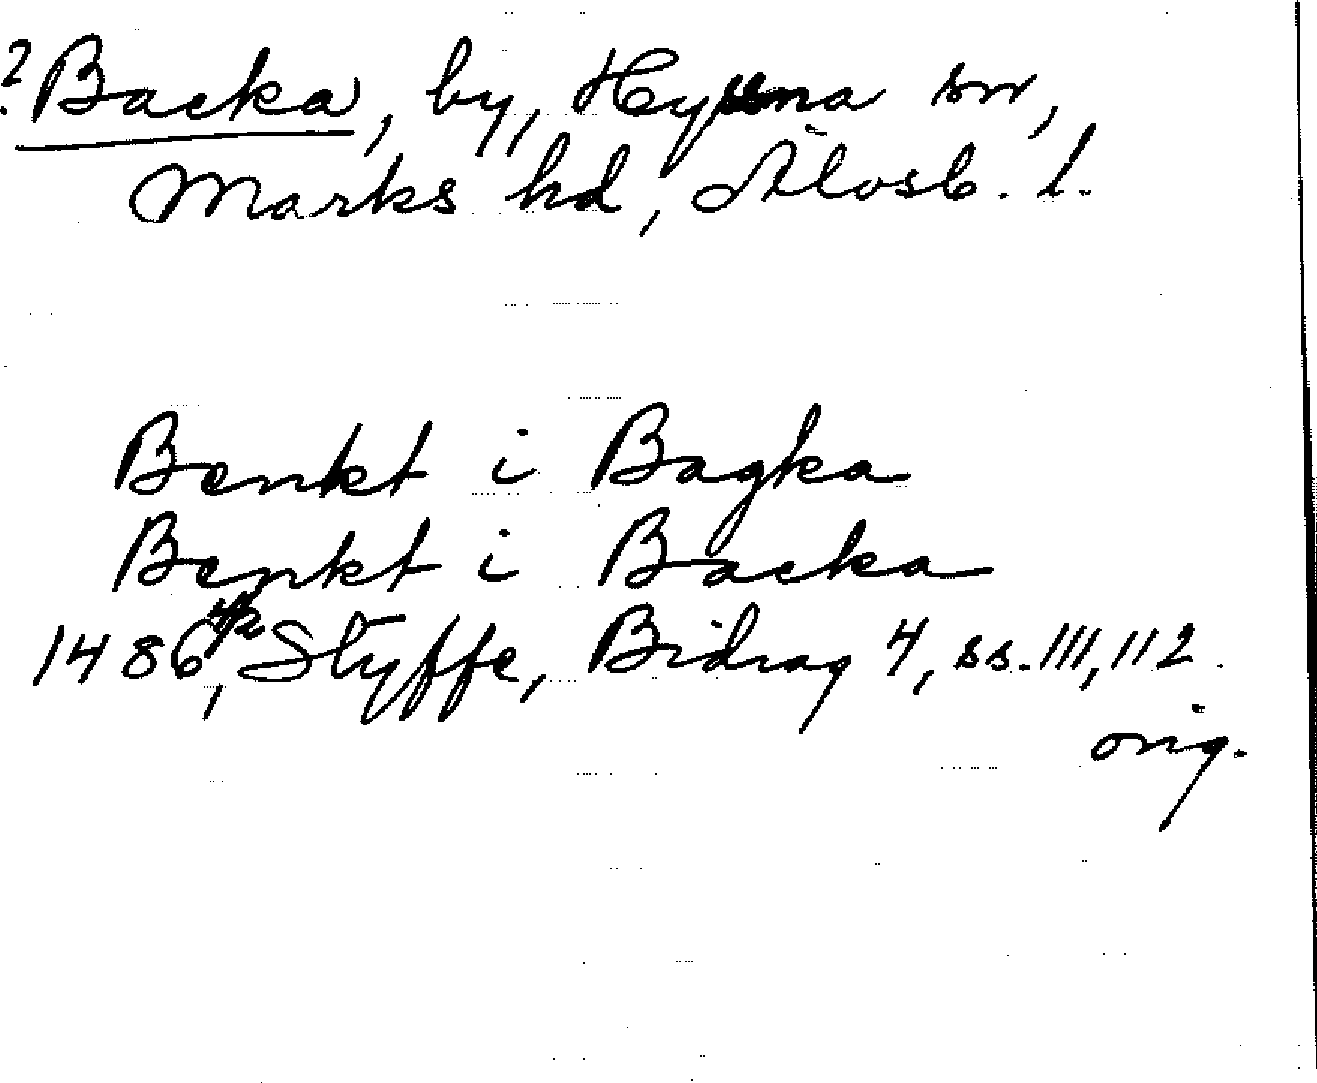 ? Backa, by, Hyssna sn,
Marks hd, Älvsb. l.
Benkt i Bagka
Benkt i Backa
1486 4/2, Styffe, Bidrag 4, ss. 111, 112.
orig.